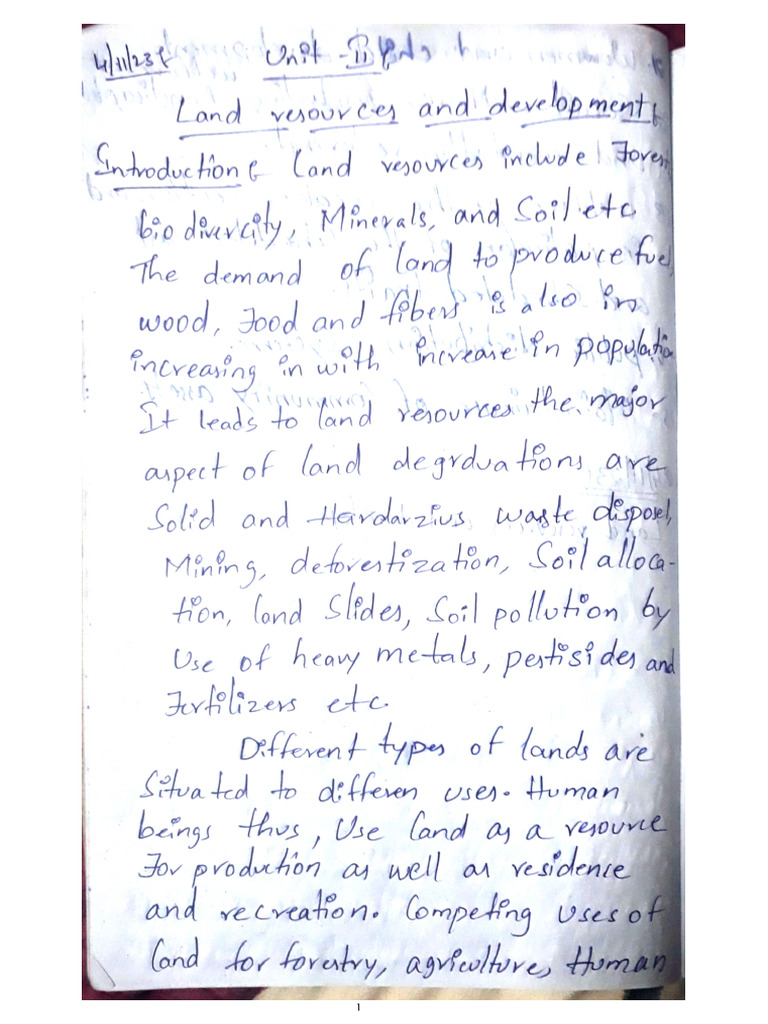 4/11/23
Unit - II
Land resources and development
Introduction: Land resources include Fores
biodivercity, Minerals, and Soil etc
The demand of land to produce fuel,
wood, Food and fibers is also in
increasing in with increase in population
It leads to land resources the major
aspect of land degrduations are
Solid and Hardarzius waste disposel,
Mining, deforestization, Soil alloca-
tion, land Slides, Soil pollution by
Use of heavy metals, pestisides and
Fertilizers etc.
Different types of lands are
Situated to differen uses. Human
beings thus, Use land as a resource
For production as well as residence
and recreation. Competing uses of
land for forestry, agriculture, Human
1